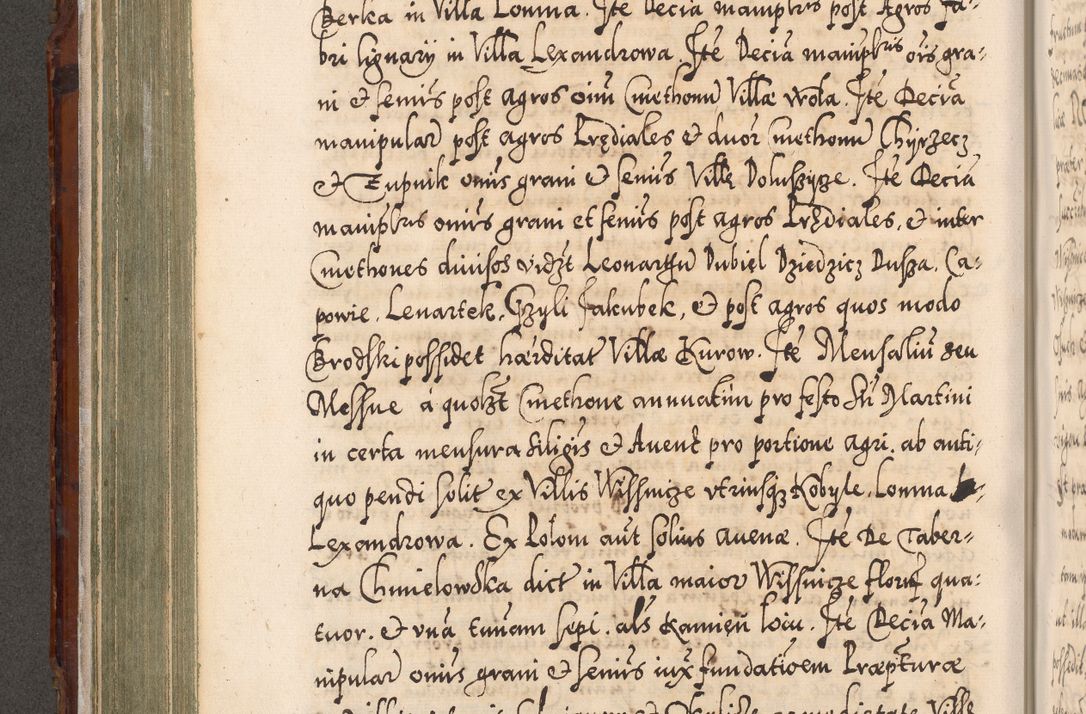 Berka in Villa Lomna. Itē Decia manipłris post Agros Fa-
bri lignarÿ in Villa Lexandrowa. Itē Decia manipłris oīs gra-
ni & seminis post agros oīm Cmethonū Villæ Wola. Itē Decia
manipulaꝛ post agros Prędiales & duoꝛ Cmethonū Chyrzecz
& Tupnik omīs grani & seminis Villę Doluszyze. Itē Decia
manipłris omīs grani et seminis post agros Prędiales, & inter
Cmethones diuisos vidzt Leonarthū Dubiel Dziedzicz Dusza. Ca-
powie, Lenartek, Gzyli Jakubek, & post agros quos modo
Brodski possidet hærditaꝛ Villæ Kurow. Itē Mensaliū seu
Messne á quolzt Cmethone annuatim pro festo Sti Martini
in certa mensura Siliginis & Auenę pro portione agri, ab anti-
quo pendi solit ex Villis Wissnicze vtriusqꝫ Kobyle, Lomna
Lexandrowa. Ex Polom aūt solius auenæ. Itē De Taber-
na Chmielowska dict in Villa maior Wissnicze floren qua-
tuor. & vna tunam sepi. als Kamień loiu. Itē Decia Ma-
nipulaꝛ omīs grani & seminis iux fundatioem Præpturæ